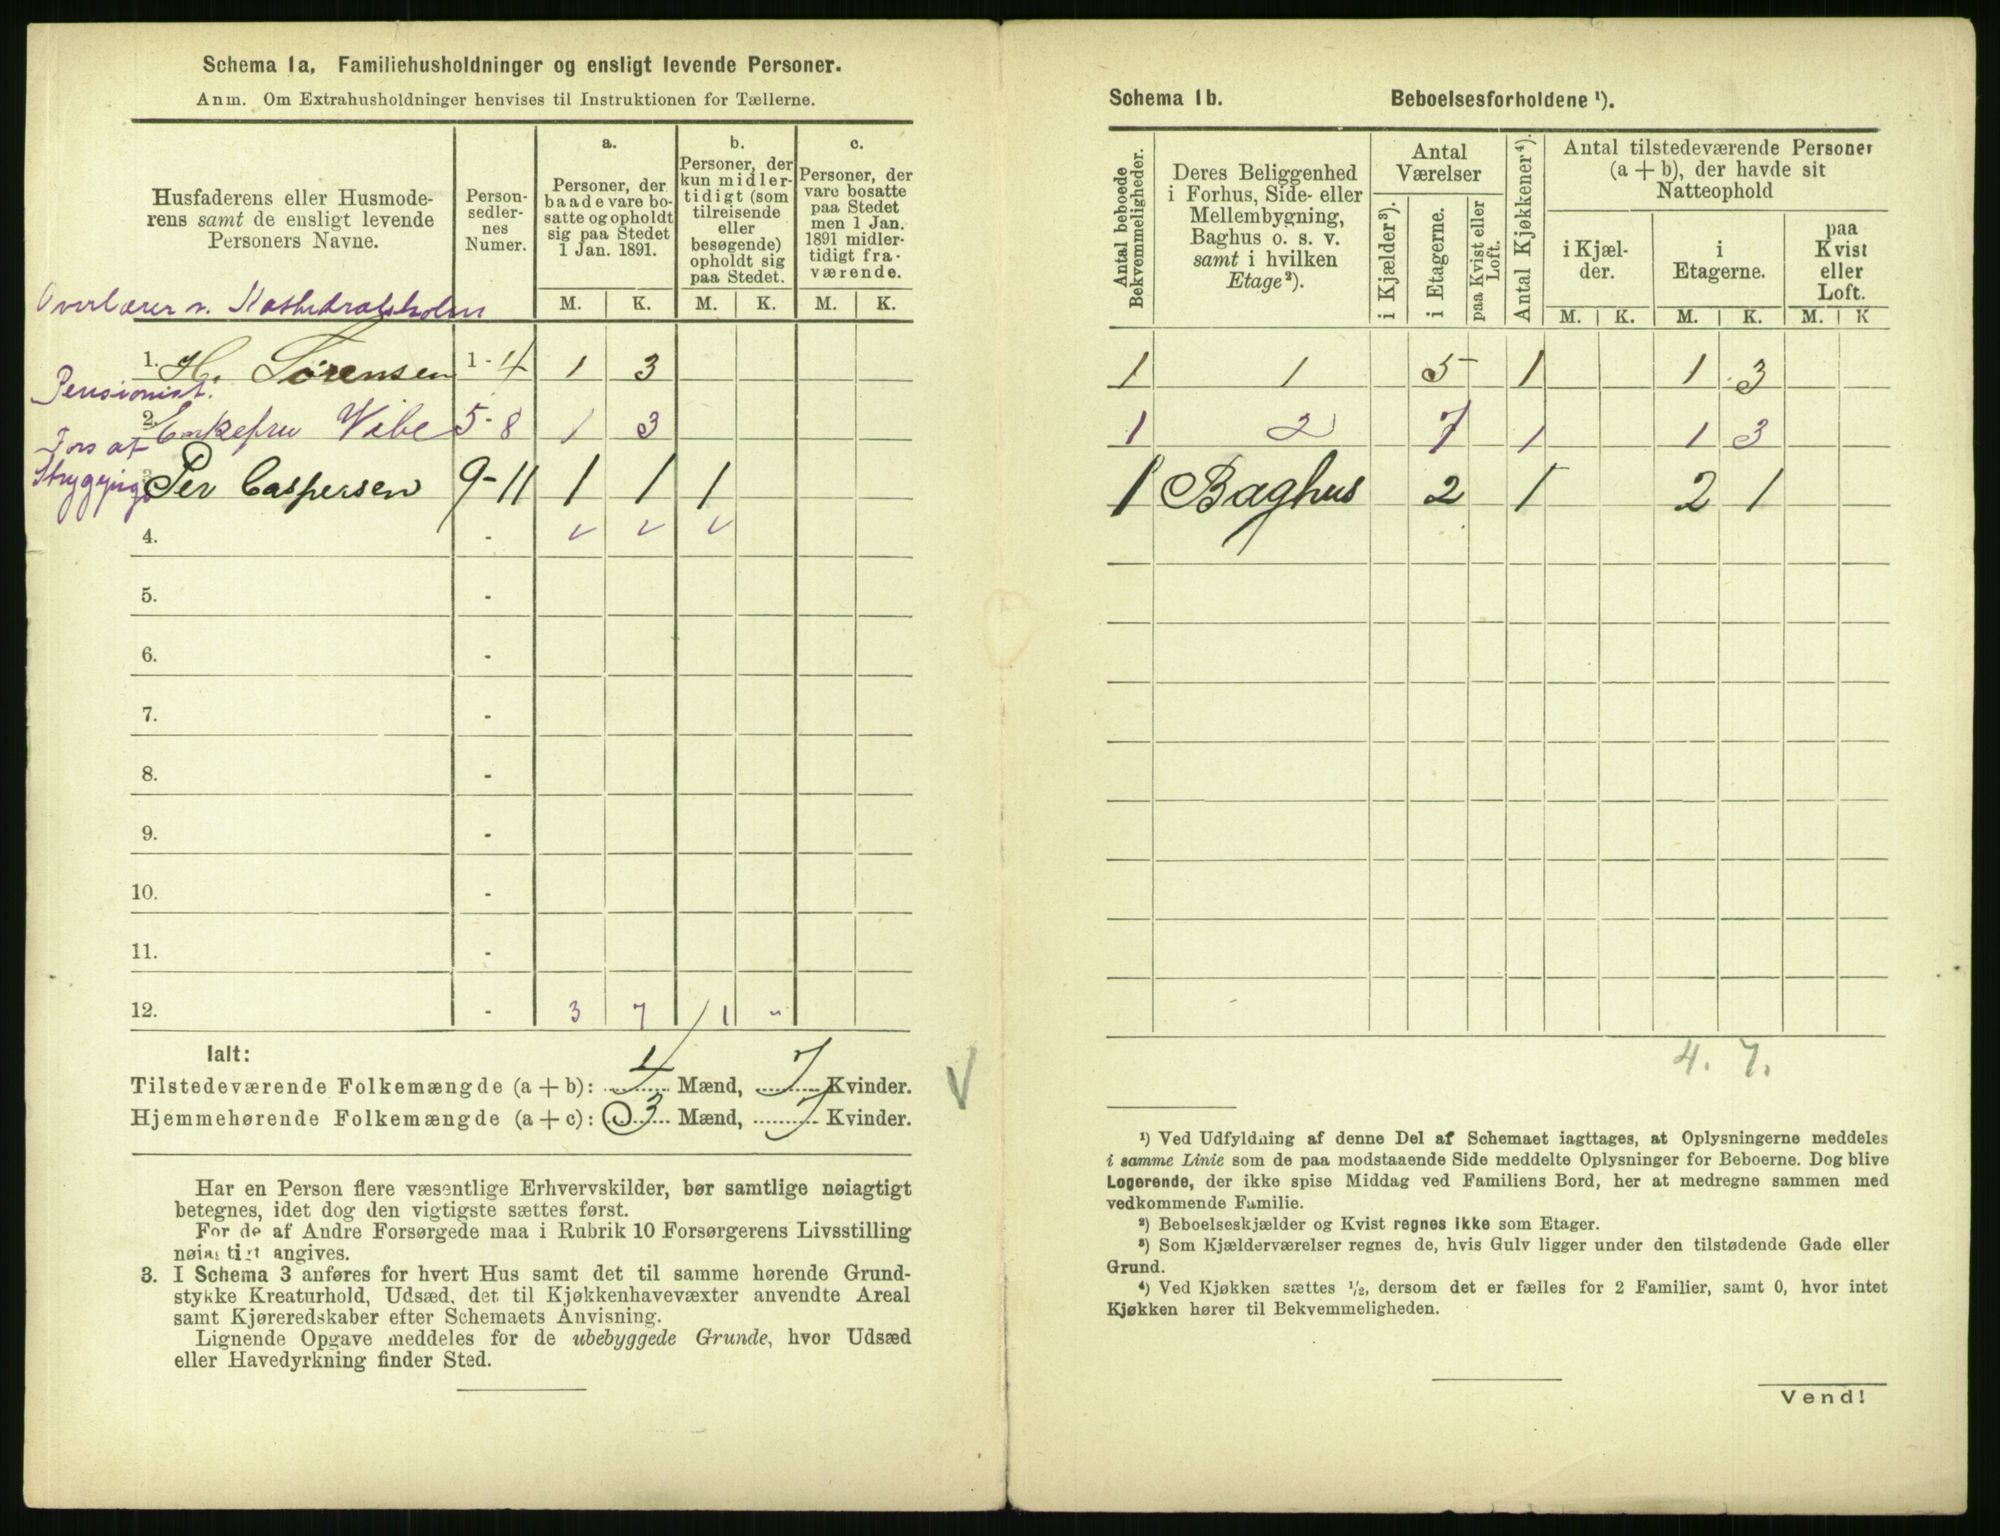 Schema 1a. Familiehusholdninger og ensligt levende Personer.
Anm. Om Extrahusholdninger henvises til Instruktionen for Tællerne.
Husfaderens eller Husmode-
rens samt de ensligt levende
Personers Navne.
Person-
sedler-
nes
Numer.
a.
Personer, der
baade vare bo-
satte og opholdt
sig paa Stedet
1 Jan. 1891.
b.
Personer, der
kun midler-
tidigt (som
tilreisende
eller
besøgende)
opholdt sig
paa Stedet.
c.
Personer, der
vare bosatte
paa Stedet
men 1 Jan.
1891 midler-
tidigt fra-
værende.
M. K. M. K. M. K.
Overlærer v. Kathedralskolen
1. H. Sørensen 1 - 4 1 3
Pensionist.
2. Enkefru Vibe 5 - 8 1 3
Fors af
Per Caspersen 9 - 11 1 1 1
4. -
5. -
6. -
7. -
8. -
9. -
10. -
11. -
12. - 3 7 1 "
Ialt:
Tilstedeværende Folkemængde (a + b): 4 Mænd, 7 Kvinder.
Hjemmehørende Folkemængde (a + c): 3 Mænd, 7 Kvinder.
Har en Person flere væsentlige Erhvervskilder, bør samtlige nøiagtigt
betegnes, idet dog den vigtigste sættes først.
For de af Andre Forsørgede maa i Rubrik 10 Forsørgerens Livsstilling
nøiagtigt angives.
3. I Schema 3 anføres for hvert Hus samt det til samme hørende Grund-
stykke Kreaturhold, Udsæd, det til Kjøkkenhavevæxter anvendte Areal
samt Kjøreredskaber efter Schemaets Anvisning.
Lignende Opgave meddeles for de ubebyggede Grunde, hvor Udsæd
eller Havedyrkning finder Sted.
Schema 1b. Beboelsesforholdene ¹).
Antal beboede
Bekvemmeligheder.
Deres Beliggenhed
i Forhus, Side- eller
Mellembygning,
Baghus o. s. v.
samt i hvilken
Etage²).
Antal
Værelser
i Kjælder³).
i Etagerne.
paa Kvist eller
Loft.
Antal Kjøkkener⁴).
Antal tilstedeværende Personer
(a + b), der havde sit
Natteophold
i Kjæl-
der.
i
Etagerne.
paa
Kvist
eller
Loft.
M. K. M. K. M. K
1 1 5 1 1 3
1 2 7 1 1 3
1 Baghus 2 1 2 1
4. 7.
¹) Ved Udfyldning af denne Del af Schemaet iagttages, at Oplysningerne meddeles
i samme Linie som de paa modstaaende Side meddelte Oplysninger for Beboerne. Dog blive
Logerende, der ikke spise Middag ved Familiens Bord, her at medregne sammen med
vedkommende Familie.
²) Beboelseskjælder og Kvist regnes ikke som Etager.
³) Som Kjælderværelser regnes de, hvis Gulv ligger under den tilstødende Gade eller
Grund.
⁴) Ved Kjøkken sættes ½, dersom det er fælles for 2 Familier, samt 0, hvor intet
Kjøkken hører til Bekvemmeligheden.
Vend!